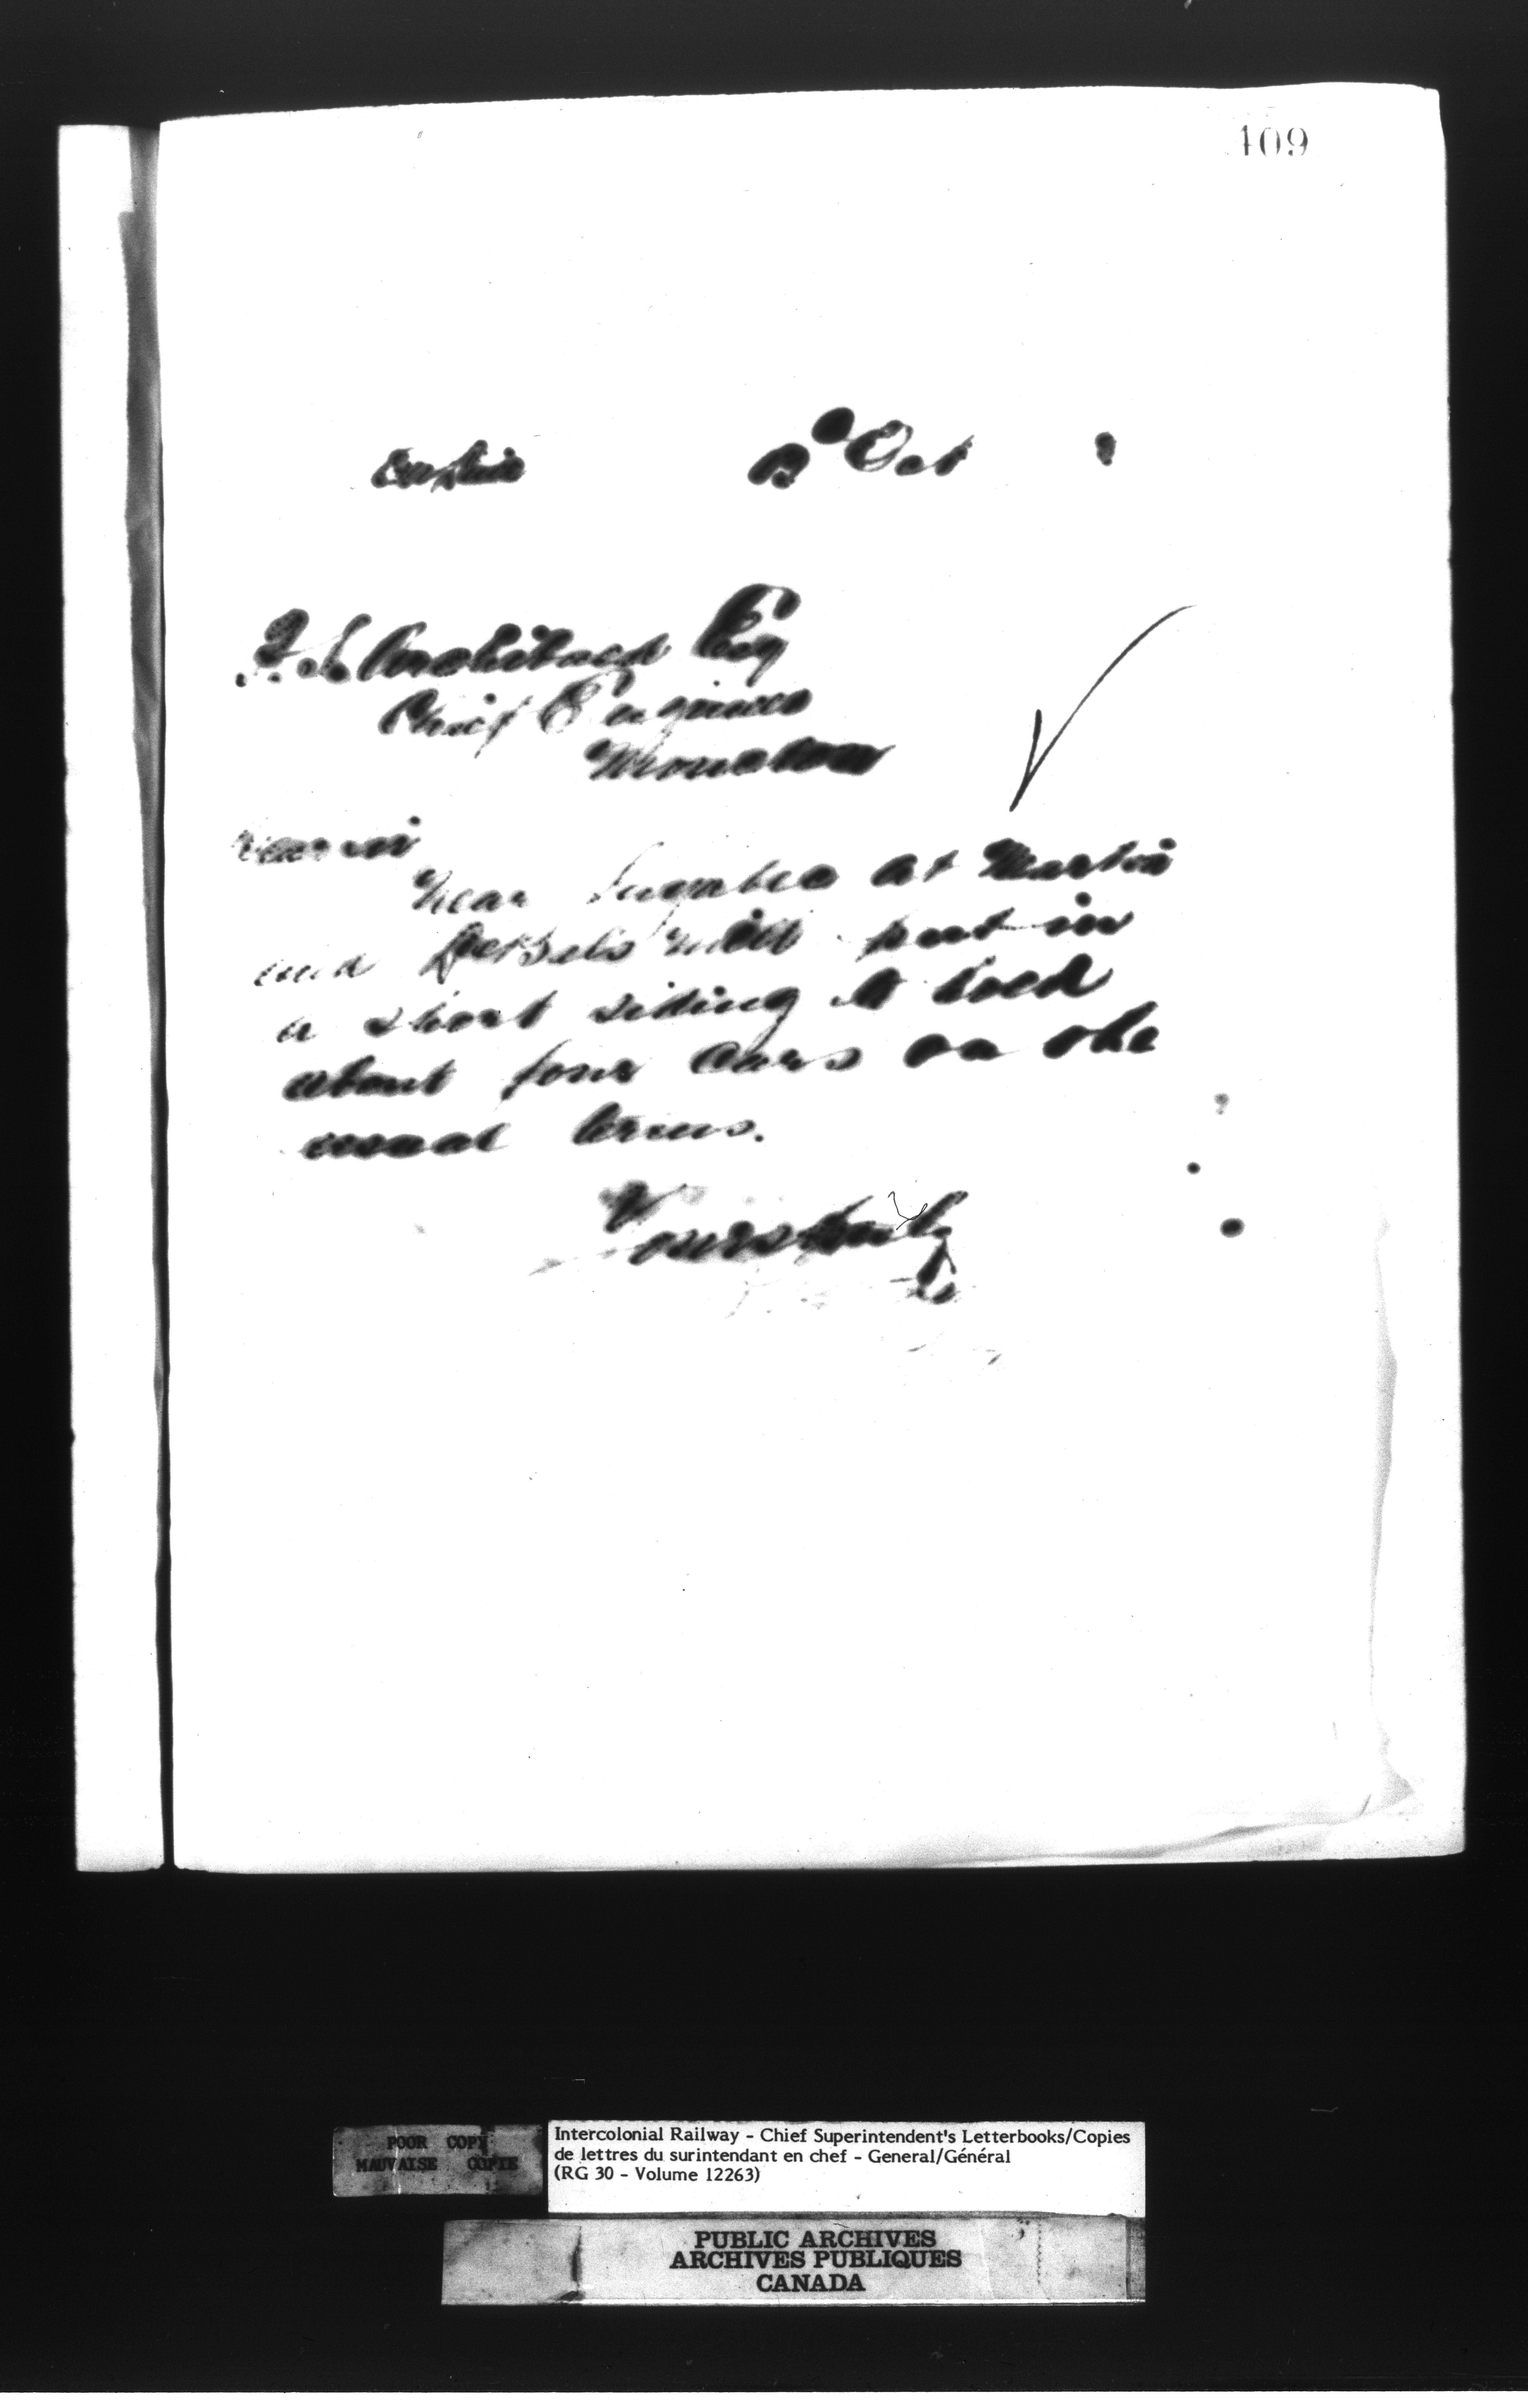 409
Oct
P. S. Archibald Esq
Chief Engineer
Moncton
Dear Sir
Near at Martin
and mill put in
a short siding to hold
about four cars on the
usual terms.
Yours truly
POOR COPY
MAUVAISE COPIE
Intercolonial Railway - Chief Superintendent's Letterbooks/Copies
de lettres du surintendant en chef - General/Général
(RG 30 - Volume 12263)
PUBLIC ARCHIVES
ARCHIVES PUBLIQUES
CANADA